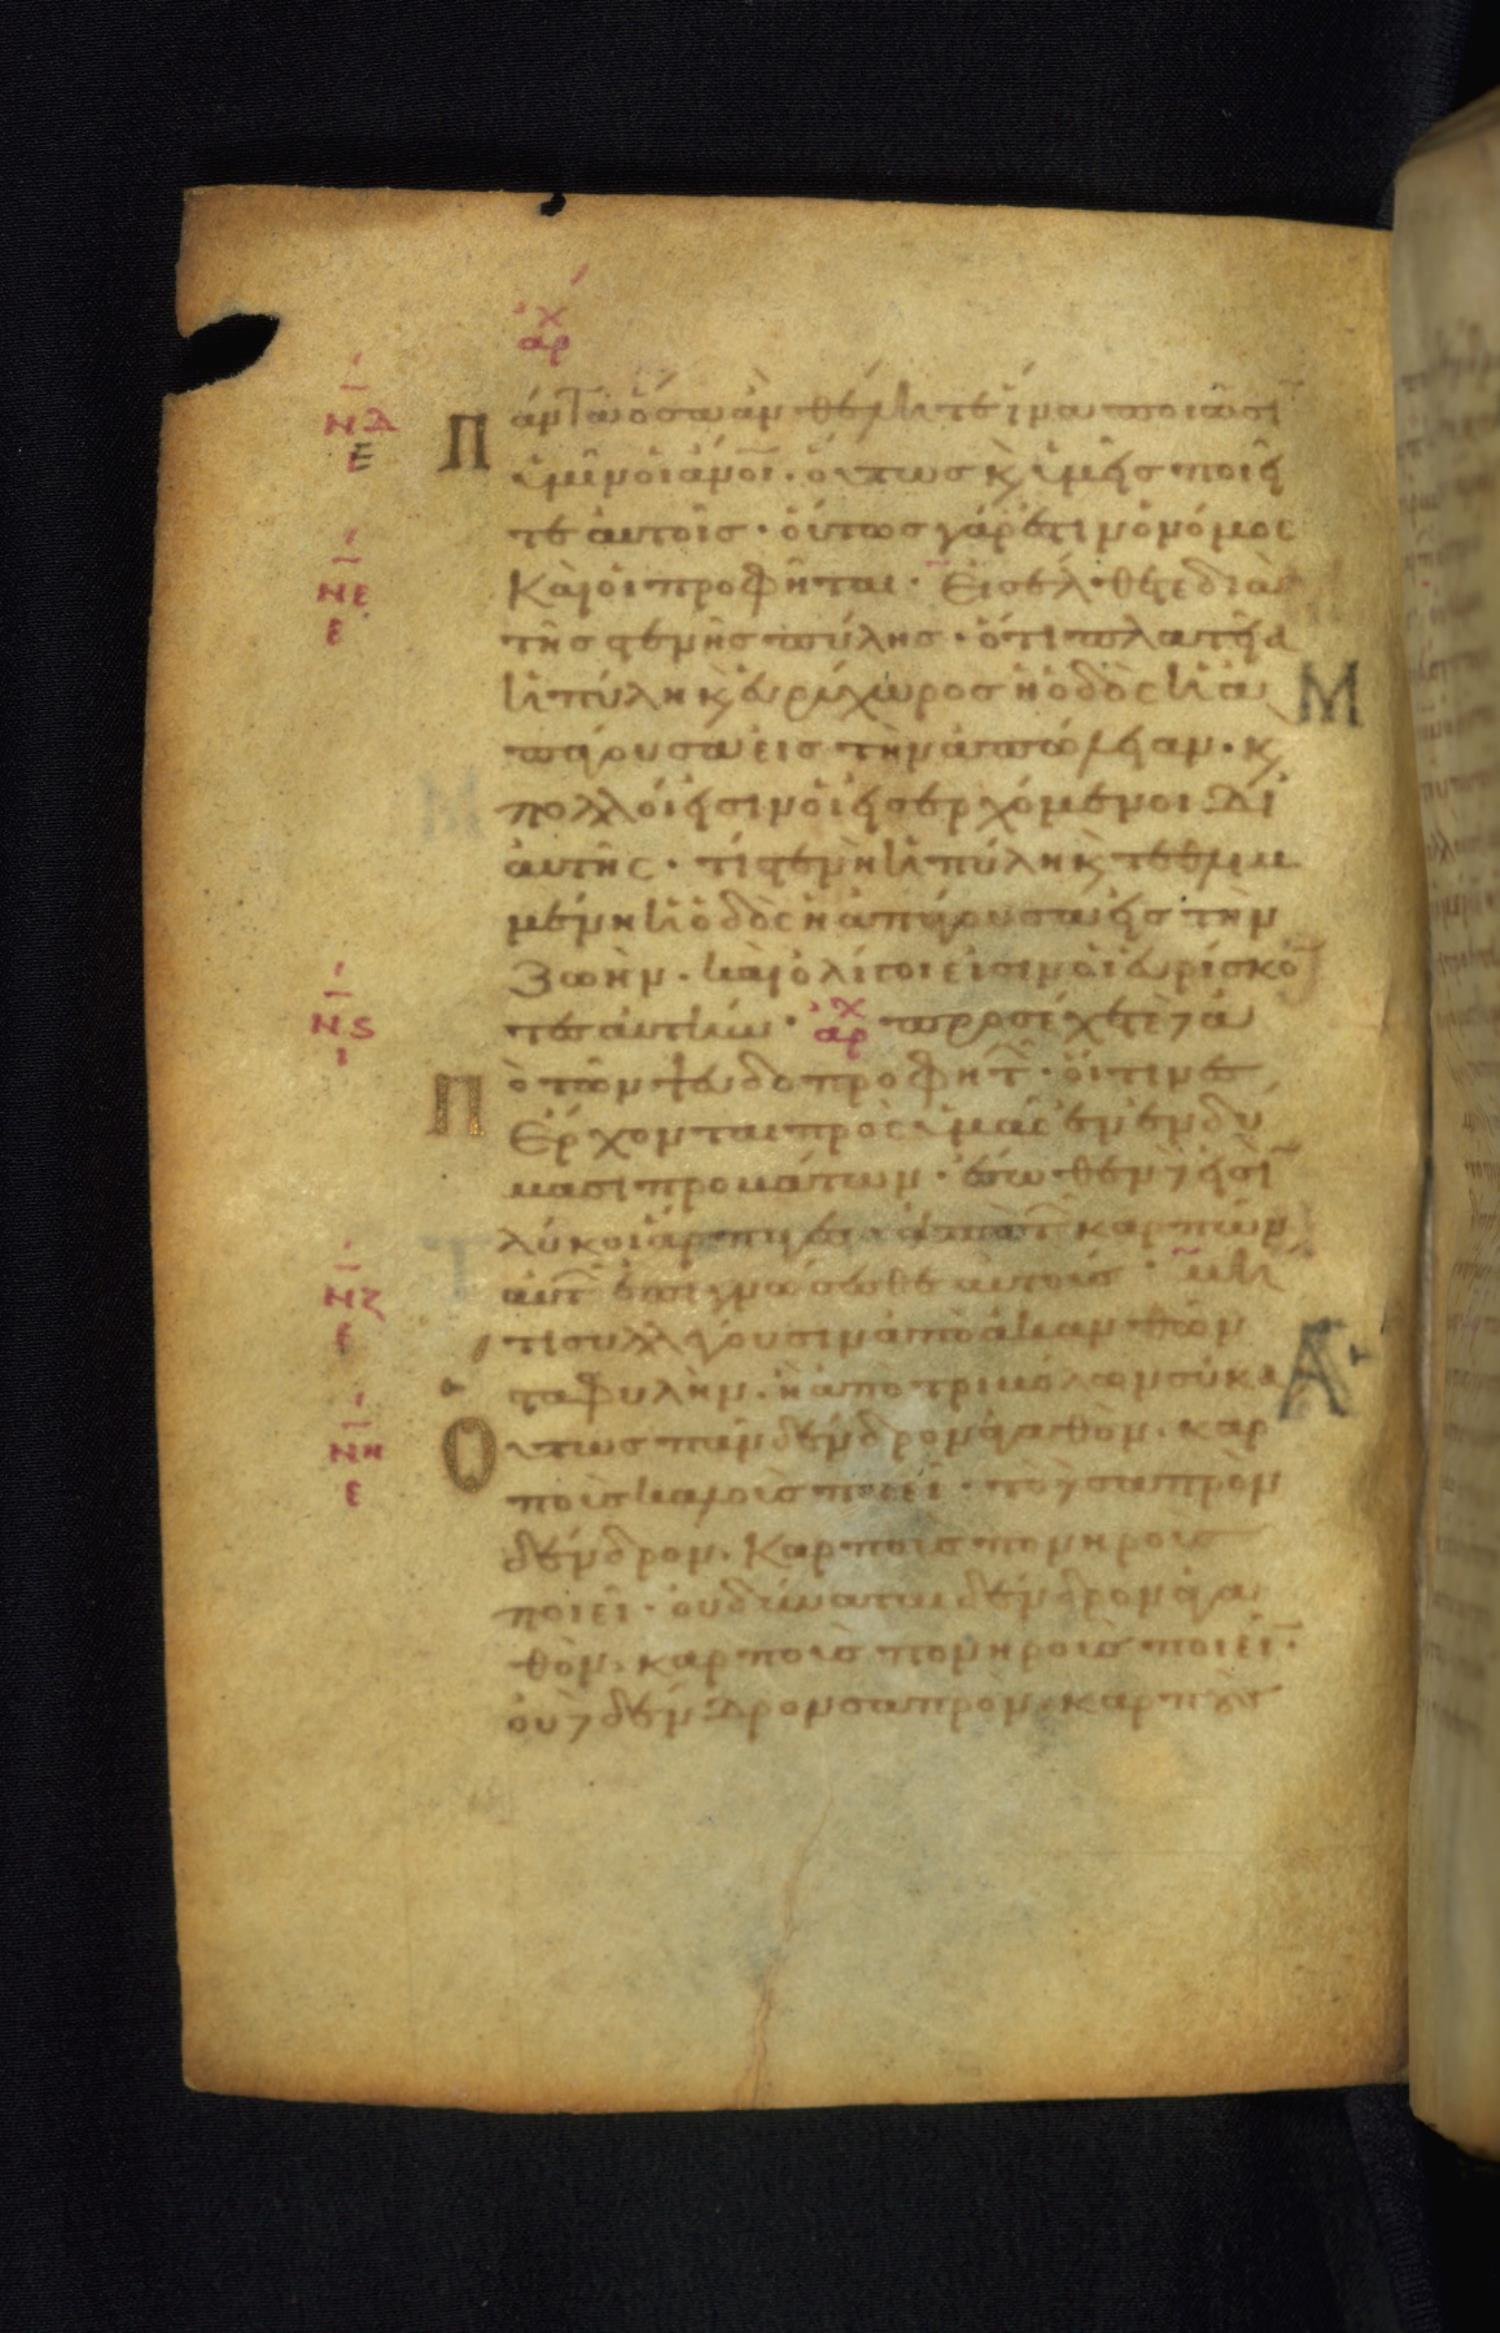 αρχ
ΝΔ Ε
Πάντα ὅσα ἂν θέλητε ἵνα ποιῶσῑ
ὑμῖν οἱ ἀν̅ο̅ι̅· οὕτως κ̀ ὑμεῖς ποιεῖ
τε αὐτοῖς· οὗτος γάρ ἐστιν ὁ νόμος
ΝΕ Ε
Καὶ οἱ προφῆται· Εἰσέλθετε διὰ
τῆς στενῆς πύλης· ὅτι πλατεῖα
ἡ πύλη κ̀ εὐρύχωρος ἡ ὁδὸς ἡ ἀ
Μ
πάγουσα εἰς τὴν ἀπώλειαν· κ̀
πολλοί εἰσιν οἱ εἰσερχόμενοι δι
αὐτῆς· τί στενὴ ἡ πύλη κ̀ τεθλιμ
μένη ἡ ὁδὸς ἡ ἀπάγουσα εἰς τὴν
ζωὴν· καὶ ὀλίγοι εἰσιν οἱ εὑρίσκο
ΝϚ Ι
τες αὐτήν· αρχ προσέχετε δὲ ἀ
Πὸ τῶν ψευδοπροφητ῀· οἵτινες
ἔρχονται πρὸς ὑμᾶς ἐν ἐνδύ
μασι προβάτων· ἔσωθεν δὲ εἰσῑ
λύκοι ἅρπαγες· ἀπὸ τ῀ καρπῶν
ΝΖ Ε
αὐτ῀ ἐπιγνώσεσθε αὐτούς· μή
τι συλλέγουσιν ἀπὸ ἀκανθῶν
σταφυλὴν· ἢ ἀπὸ τριβόλων σῦκα
Α
ΝΗ Ε
Οὕτως πᾶν δένδρον ἀγαθὸν· καρ
ποὺς καλοὺς ποιεῖ· τὸ δὲ σαπρὸν
δένδρον· Καρποὺς πονηροὺς
ποιεῖ· οὐ δύναται δένδρον ἀγα
θὸν· καρποὺς πονηροὺς ποιεῖν·
οὐ δὲ δένδρον σαπρὸν· καρποὺς